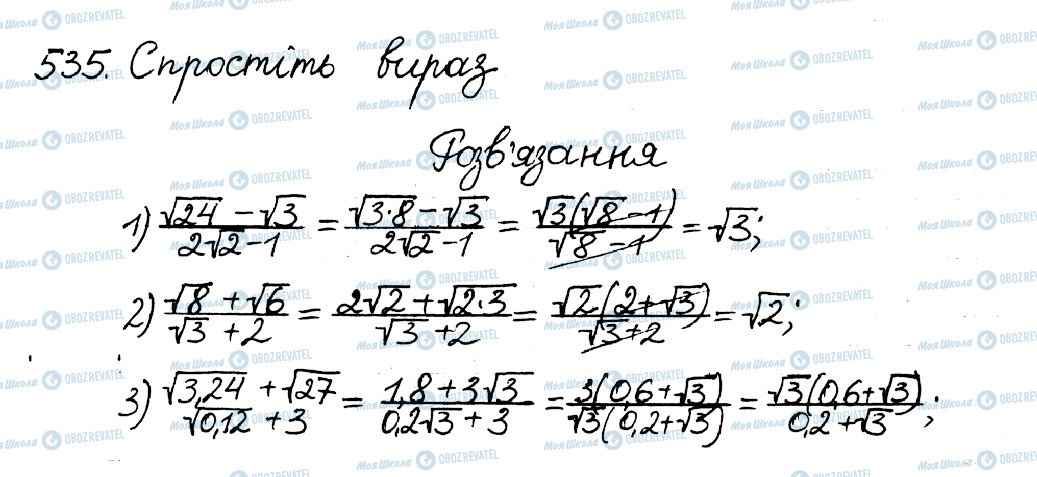 535. Спростіть вираз
Розв'язання
1) (√24 − √3)/(2√2 − 1) = (√(3·8) − √3)/(2√2 − 1) = (√3(√8 − 1))/(√8 − 1) = √3;
2) (√8 + √6)/(√3 + 2) = (2√2 + √(2·3))/(√3 + 2) = (√2(2 + √3))/(√3 + 2) = √2;
3) (√3,24 + √27)/(√0,12 + 3) = (1,8 + 3√3)/(0,2√3 + 3) = (3(0,6 + √3))/(√3(0,2 + √3)) = (√3(0,6 + √3))/(0,2 + √3);
Моя Школа OBOZREVATEL